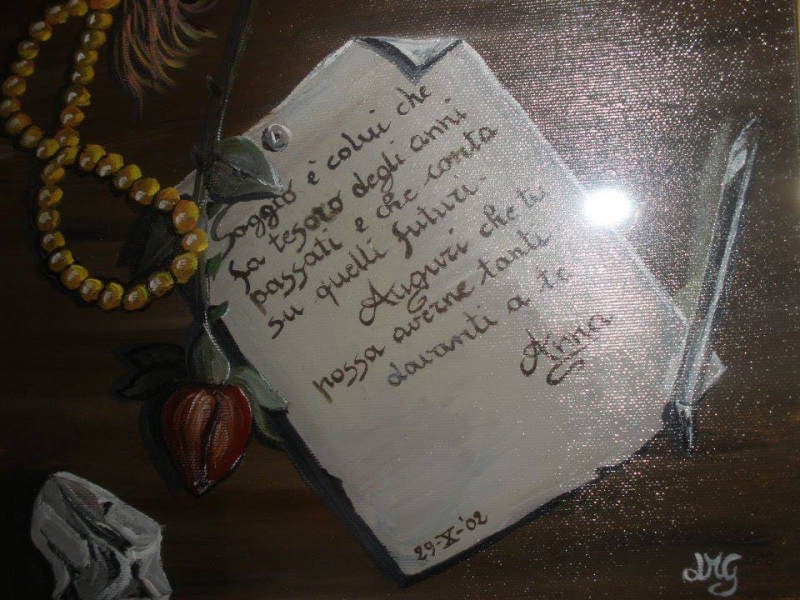 Saggio è colui che
fa tesoro degli anni
passati e che conta
su quelli futuri.
Auguri che tu
possa averne tanti
davanti a te
Anna
29-X-'02